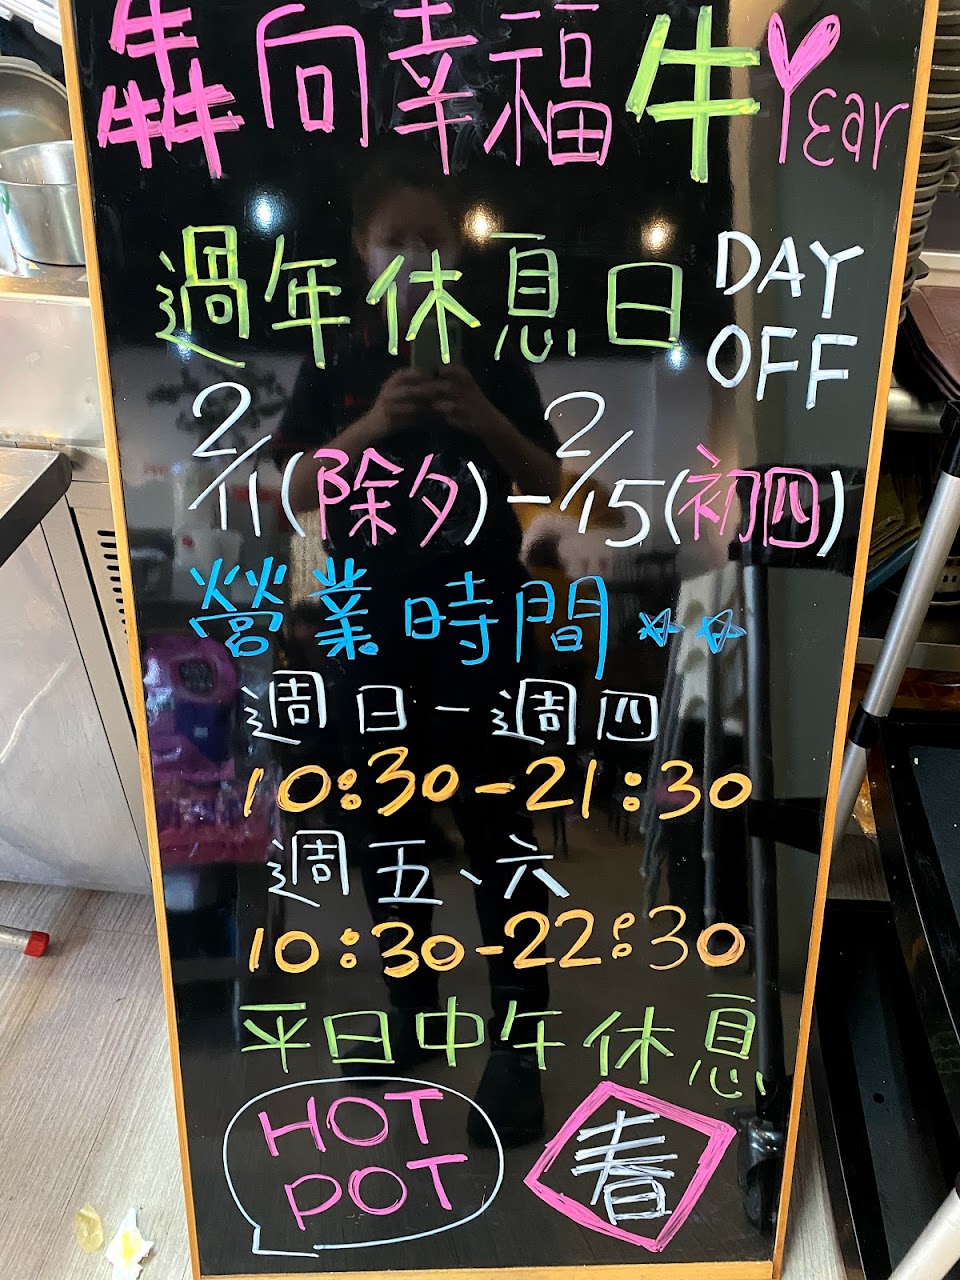 犇向幸福牛Year
過年休息日 DAY OFF
2/11(除夕)-2/15(初四)
營業時間
週日-週四
10:30-21:30
週五、六
10:30-22:30
平日中午休息
HOT POT
春